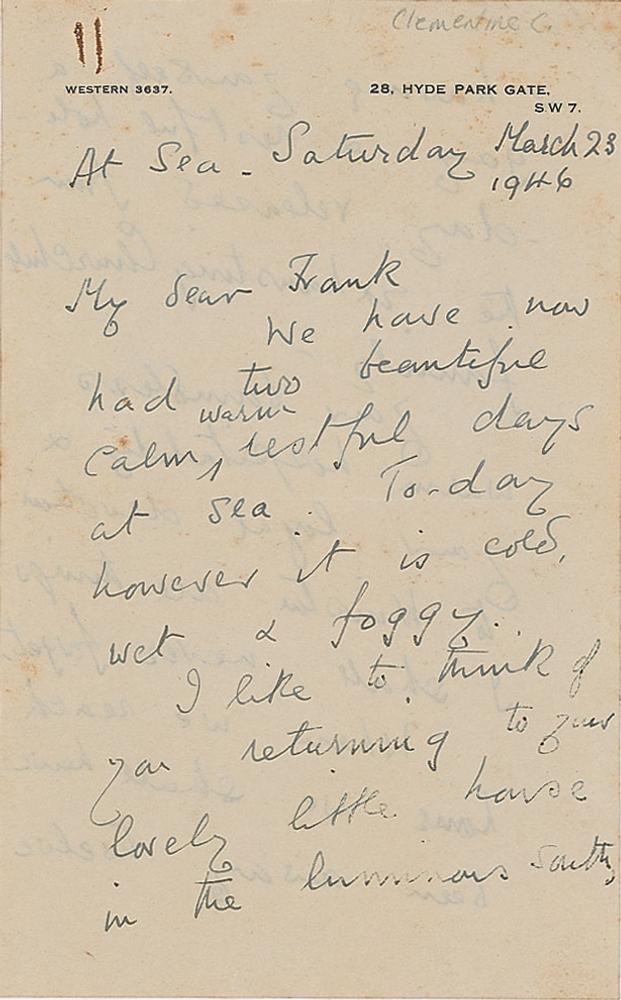 Clementine C.
WESTERN 3637.
28, HYDE PARK GATE,
S.W 7.
At Sea - Saturday March 23
1946
My dear Frank
We have now
had two beautiful
warm
calm, restful days
at sea. To-day
however it is cold,
wet & foggy.
I like to think of
you returning to your
lovely little house
in the luminous South,